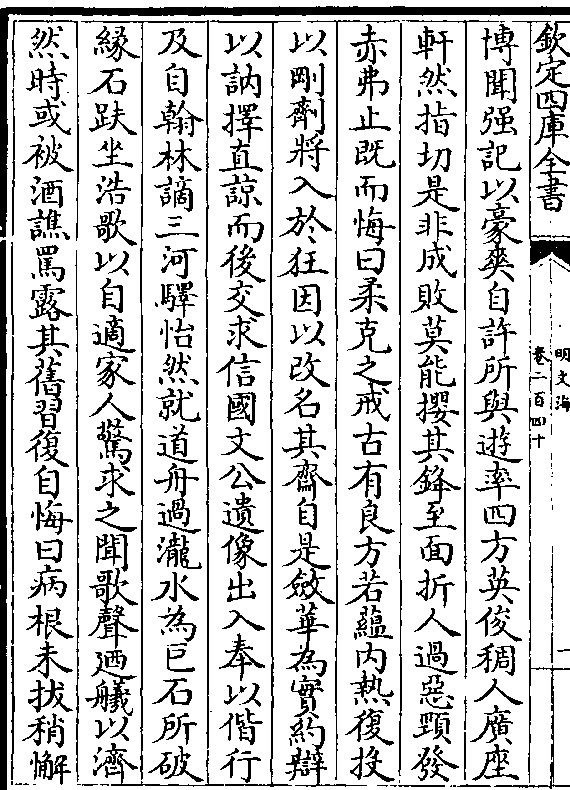 欽定四庫全書
明文海
卷二百四十
一
博聞强記以豪爽自許所與遊率四方英俊稠人廣座
軒然指切是非成敗莫能攖其鋒至面折人過惡顋發
赤弗止既而悔曰柔克之戒古有良方若蘊内熱復投
以剛劑將入於狂因以改名其齋自是斂華為實約辯
以訥擇直諒而後交求信國文公遺像出入奉以偕行
及自翰林謫三河驛怡然就道舟過瀧水為巨石所破
緣石趺坐浩歌以自適家人驚求之聞歌聲廼艤以濟
然時或被酒譙罵露其舊習復自悔曰病根未拔稍懈